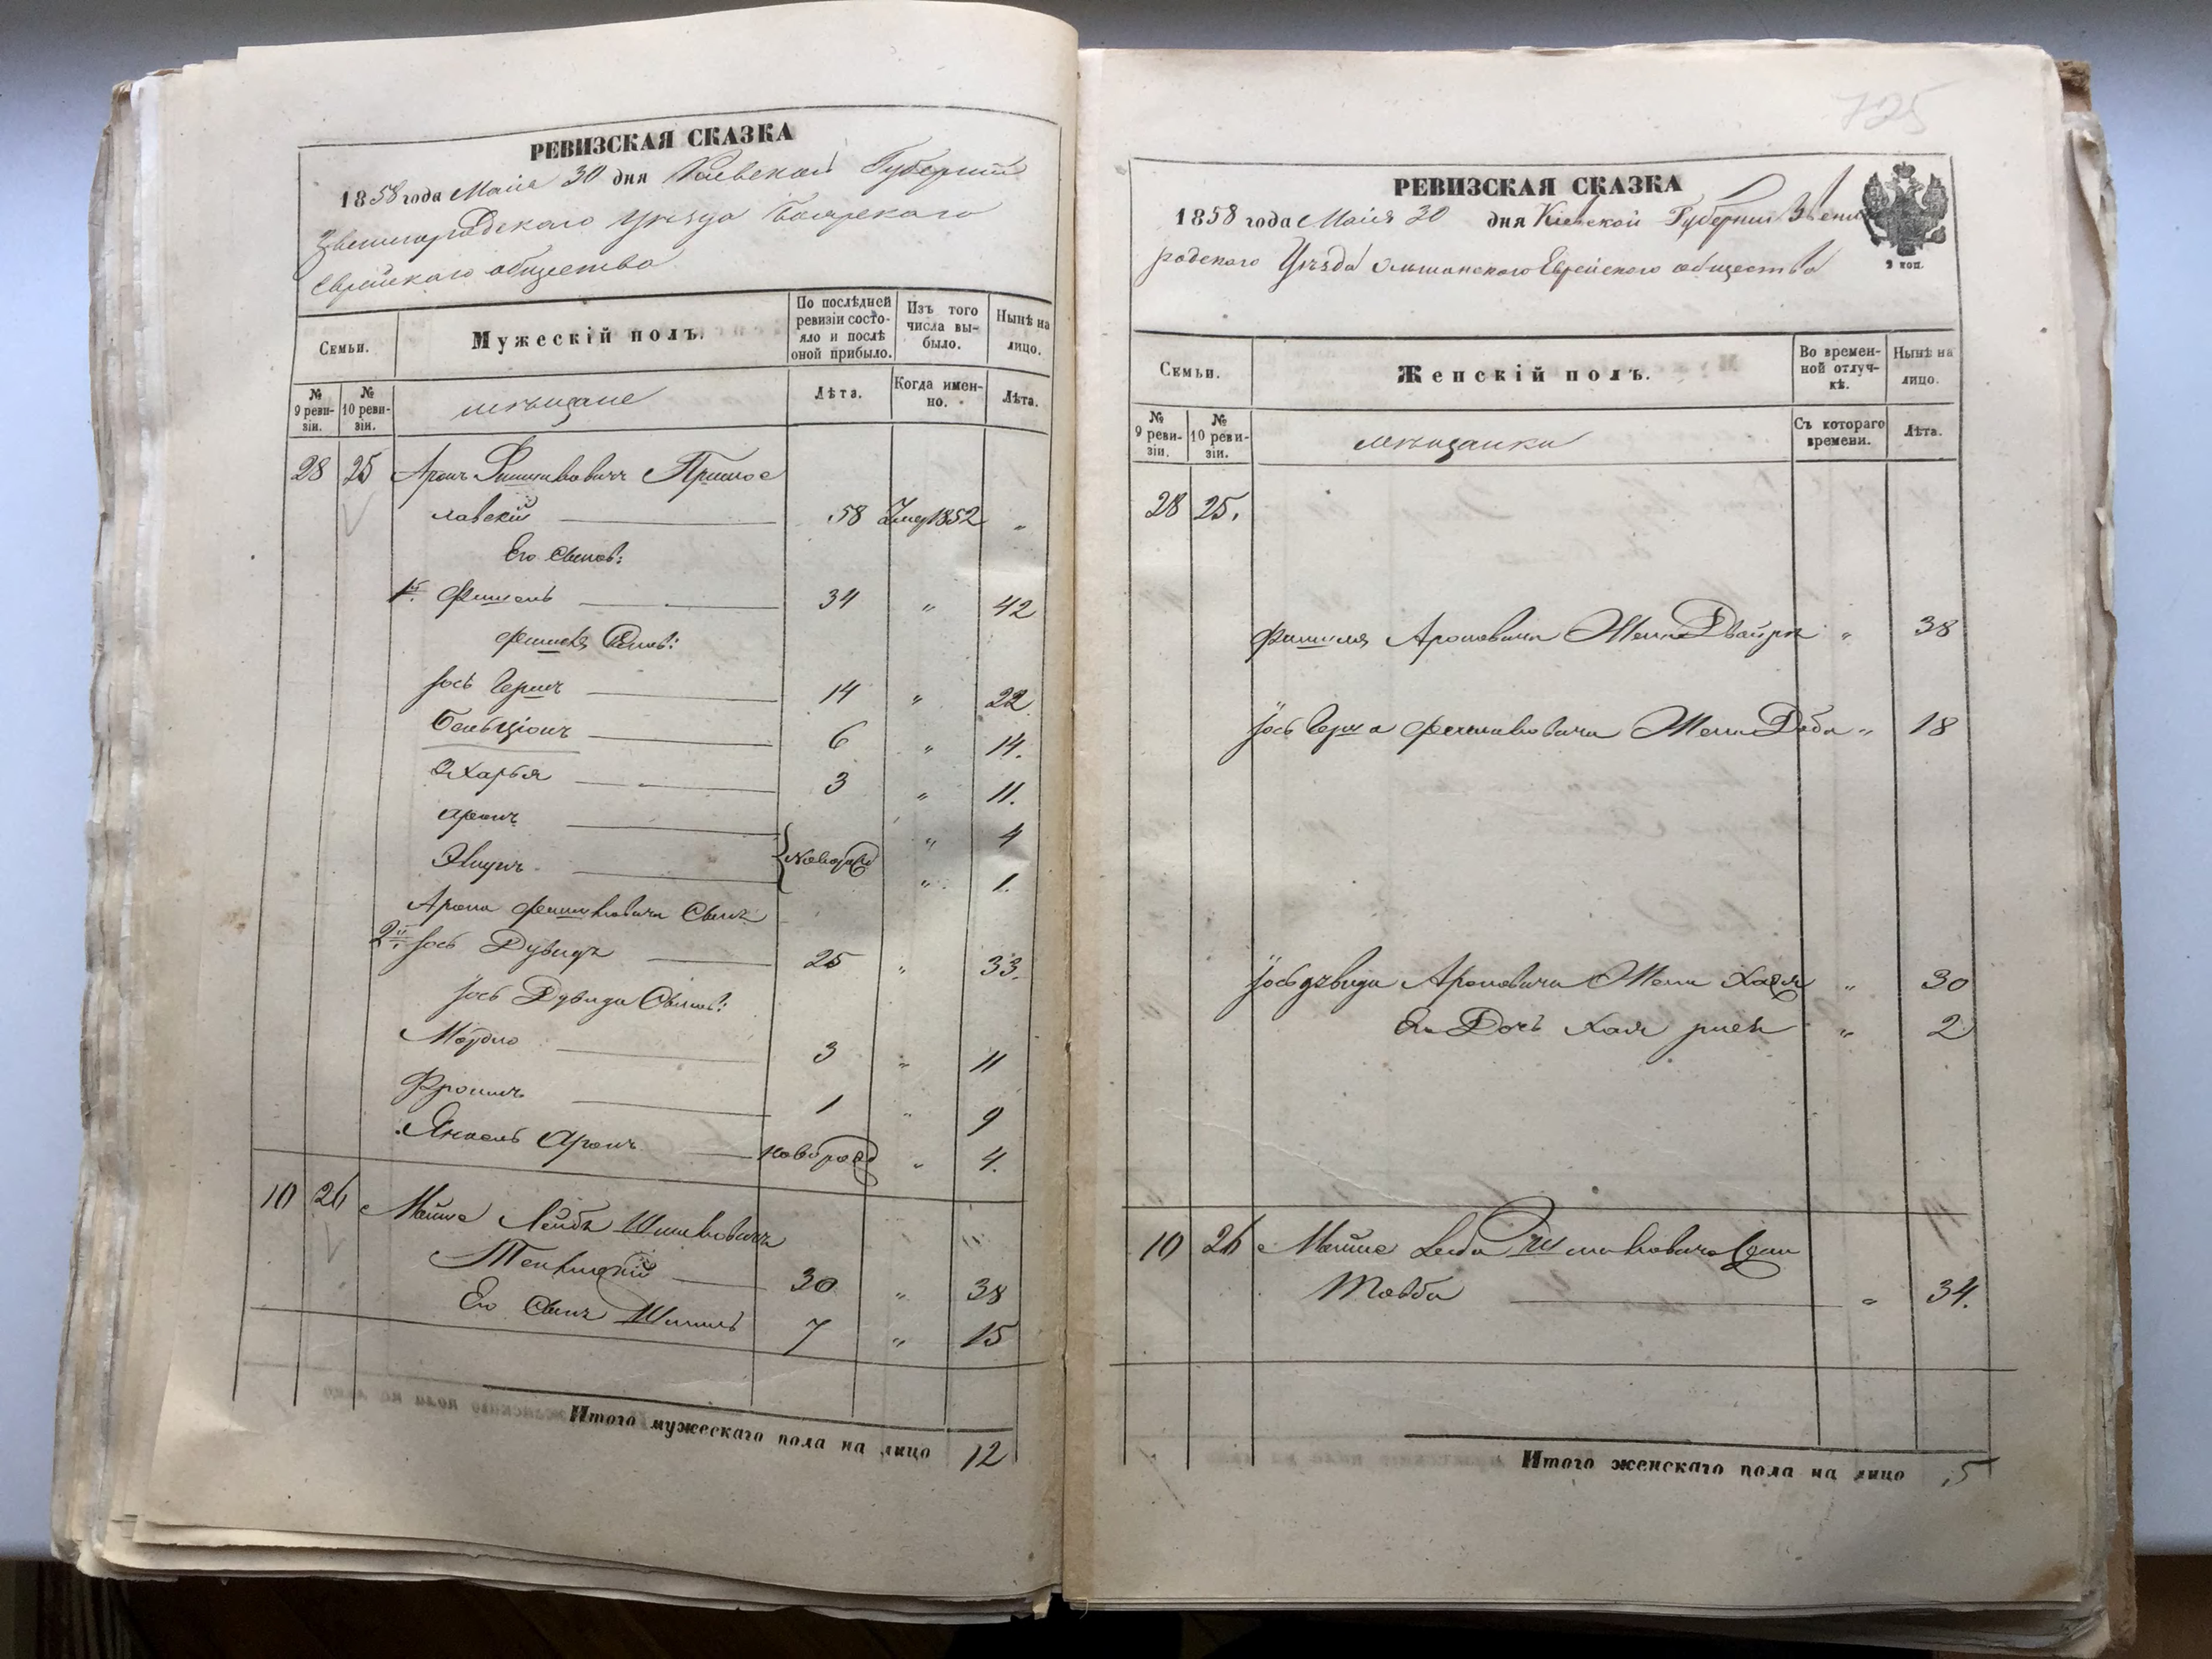 РЕВИЗСКАЯ СКАЗКА
1858 года Маiя 30 дня Кіевской Губерніи
Звенигородского Уѣзда Боярского
Еврейского общества
Семьи.
Мужескій полъ.
По послѣдней ревизіи состояло и послѣ оной прибыло.
Изъ того числа выбыло.
Нынѣ на лицо.
№ 9 ревизіи.
№ 10 ревизіи.
мѣщане
Лѣта.
Когда именно.
Лѣта.
28 25 Аронъ
лавскій 58 1852 „
Его сыновь:
1й Фишель 34 „ 42
Фишеля Сыновь:
Іось Гершъ 14 „ 22
Беньціонъ 6 „ 14.
Зхарья 3 „ 11.
Аронъ „ 4
новорожд
„ 1.
Арона Фишковича Сынъ
2й Іось Дувидъ 25 „ 33.
Іось Дувида Сыновь:
Мордко 3 „ 11
Фроимъ 1 „ 9
Янкель Аронъ новорожд „ 4.
10 26 Мойше Лейба Шмильовичъ
30 „ 38
Его Сынъ Шмиль 7 „ 15
Итого мужескаго пола на лицо 12
725
РЕВИЗСКАЯ СКАЗКА
1858 года Маія 30 дня Кіевской Губерніи Звени
родского Уѣзда Ольшанского Еврейского общества
9 коп.
Семьи.
Женскій полъ.
Во временной отлучкѣ.
Нынѣ на лицо.
№ 9 ревизіи.
№ 10 ревизіи.
мѣщанки
Съ котораго времени.
Лѣта.
28 25.
Фишеля Ароновича Жена Двойра „ 38
Іось Герша Фишковича Жена Доба „ 18
Іось Дувида Ароновича Жена Хая „ 30
Ея Дочь Хая „ 2
10 26 Мойше Лейба Жена
Товба „ 34.
Итого женскаго пола на лицо 5